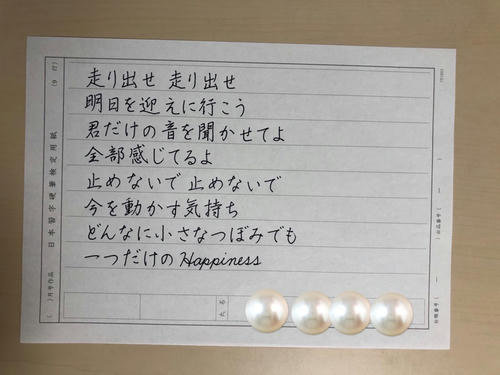 走り出せ 走り出せ
明日を迎えに行こう
君だけの音を聞かせてよ
全部感じてるよ
止めないで 止めないで
今を動かす気持ち
どんなに小さなつぼみでも
一つだけのHappiness
氏名
日本習字硬筆検定用紙
( )月号作品